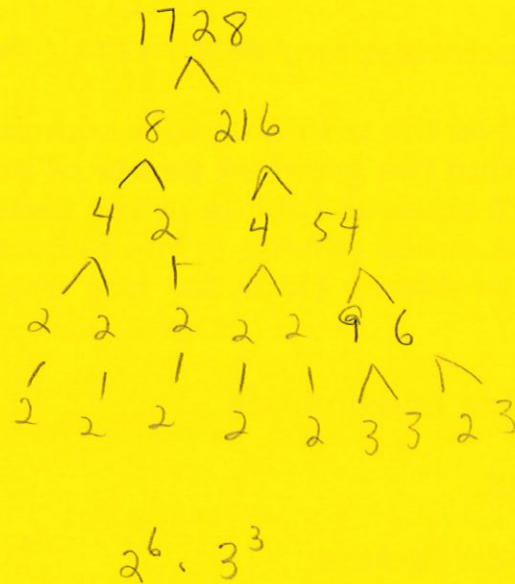 1728
8 216
4 2 4 54
2 2 2 2 2 9 6
2 2 2 2 2 3 3 2 3
2⁶ · 3³